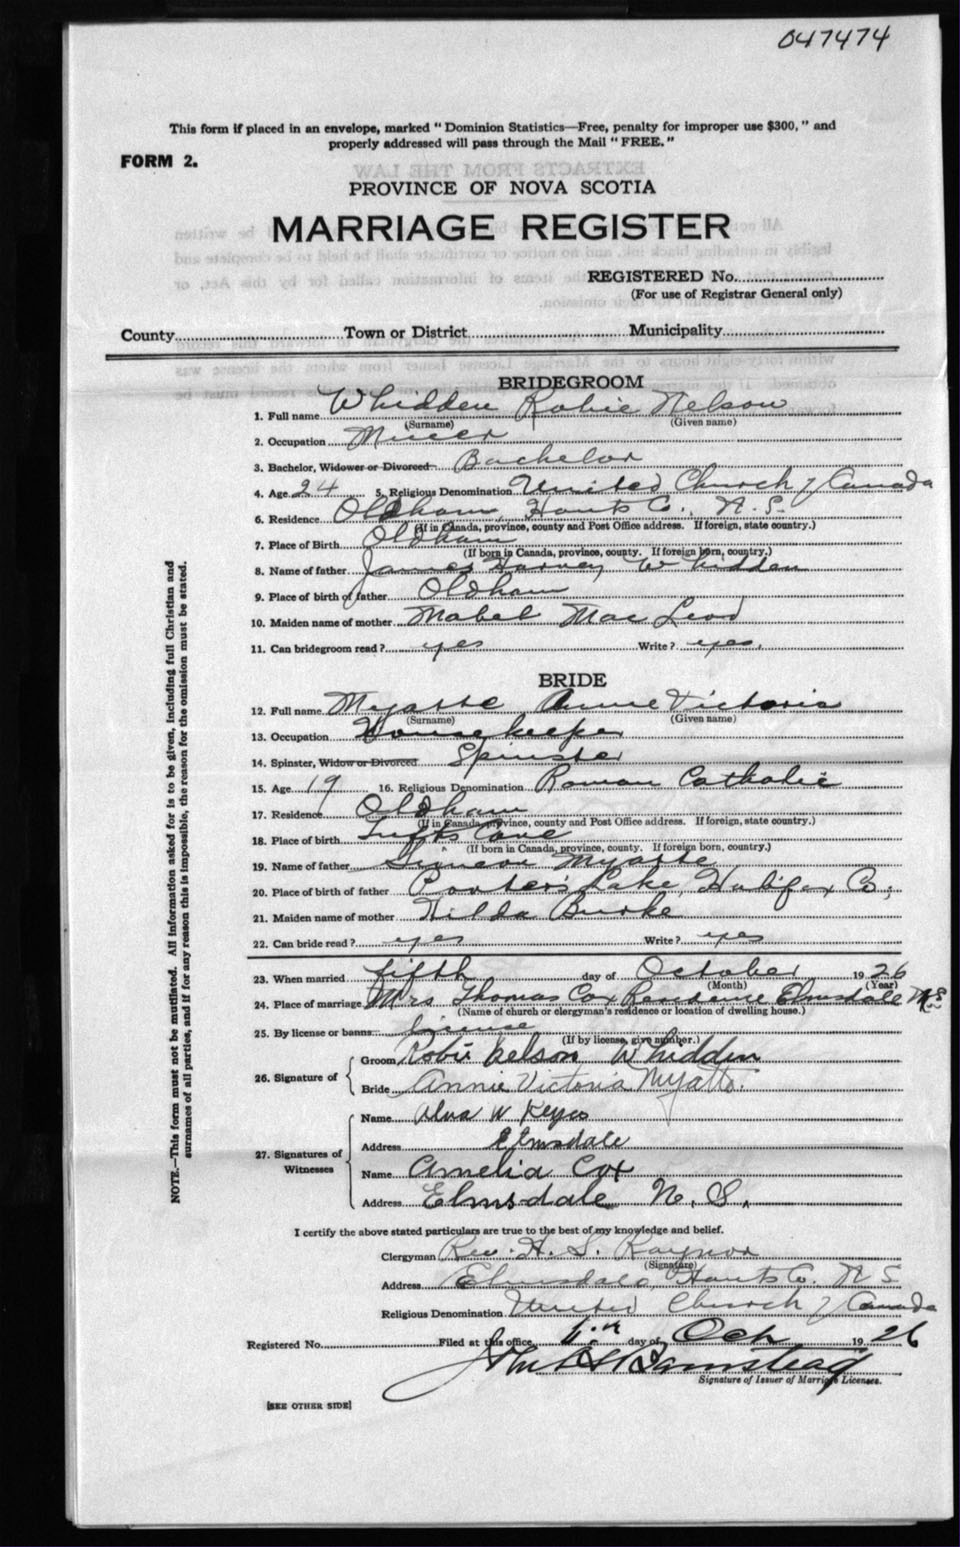 047474
This form if placed in an envelope, marked " Dominion Statistics—Free, penalty for improper use $300, " and
properly addressed will pass through the Mail " FREE. "
FORM 2.
PROVINCE OF NOVA SCOTIA
MARRIAGE REGISTER
REGISTERED No.
(For use of Registrar General only)
County Town or District Municipality
BRIDEGROOM
1. Full name Whidden Robie Nelson
(Surname) (Given name)
2. Occupation Miner
3. Bachelor, Widower or Divorced Bachelor
4. Age 24 5. Religious Denomination United Church of Canada
6. Residence Oldham, Hants Co., N. S.
(If in Canada, province, county and Post Office address. If foreign, state country.)
7. Place of Birth Oldham
(If born in Canada, province, county. If foreign born, country.)
8. Name of father James Harvey Whidden
9. Place of birth of father Oldham
10. Maiden name of mother Mabel Mac Leod
11. Can bridegroom read? yes Write? yes.
BRIDE
12. Full name Myatte Annie Victoria
(Surname) (Given name)
13. Occupation Housekeeper
14. Spinster, Widow or Divorced Spinster
15. Age 19 16. Religious Denomination Roman Catholic
17. Residence Oldham
(If in Canada, province, county and Post Office address. If foreign, state country.)
18. Place of birth Tuffts Cove
(If born in Canada, province, county. If foreign born, country.)
19. Name of father Simeon Myatte
20. Place of birth of father Porter's Lake, Halifax Co,
21. Maiden name of mother Hilda Burke
22. Can bride read? yes Write? yes
23. When married fifth day of October 1926
(Month) (Year)
24. Place of marriage Mrs Thomas Cox Residence Elmsdale N.S.
(Name of church or clergyman's residence or location of dwelling house.)
25. By license or banns license
(If by license, give number.)
26. Signature of Groom Robie Nelson Whidden
Bride Annie Victoria Myatte.
27. Signatures of Witnesses Name W Keyes
Address Elmsdale
Name Amelia Cox
Address Elmsdale N. S.
I certify the above stated particulars are true to the best of my knowledge and belief.
Clergyman Rev. H. S. Raynor
(Signature)
Address Elmsdale, Hants Co. N S
Religious Denomination United Church of Canada
Registered No. Filed at this office day of Oct 1926
Signature of Issuer of Marriage Licenses.
[SEE OTHER SIDE]
NOTE.—This form must not be mutilated. All information asked for is to be given, including full Christian and
surnames of all parties, and if for any reason this is impossible, the reason for the omission must be stated.